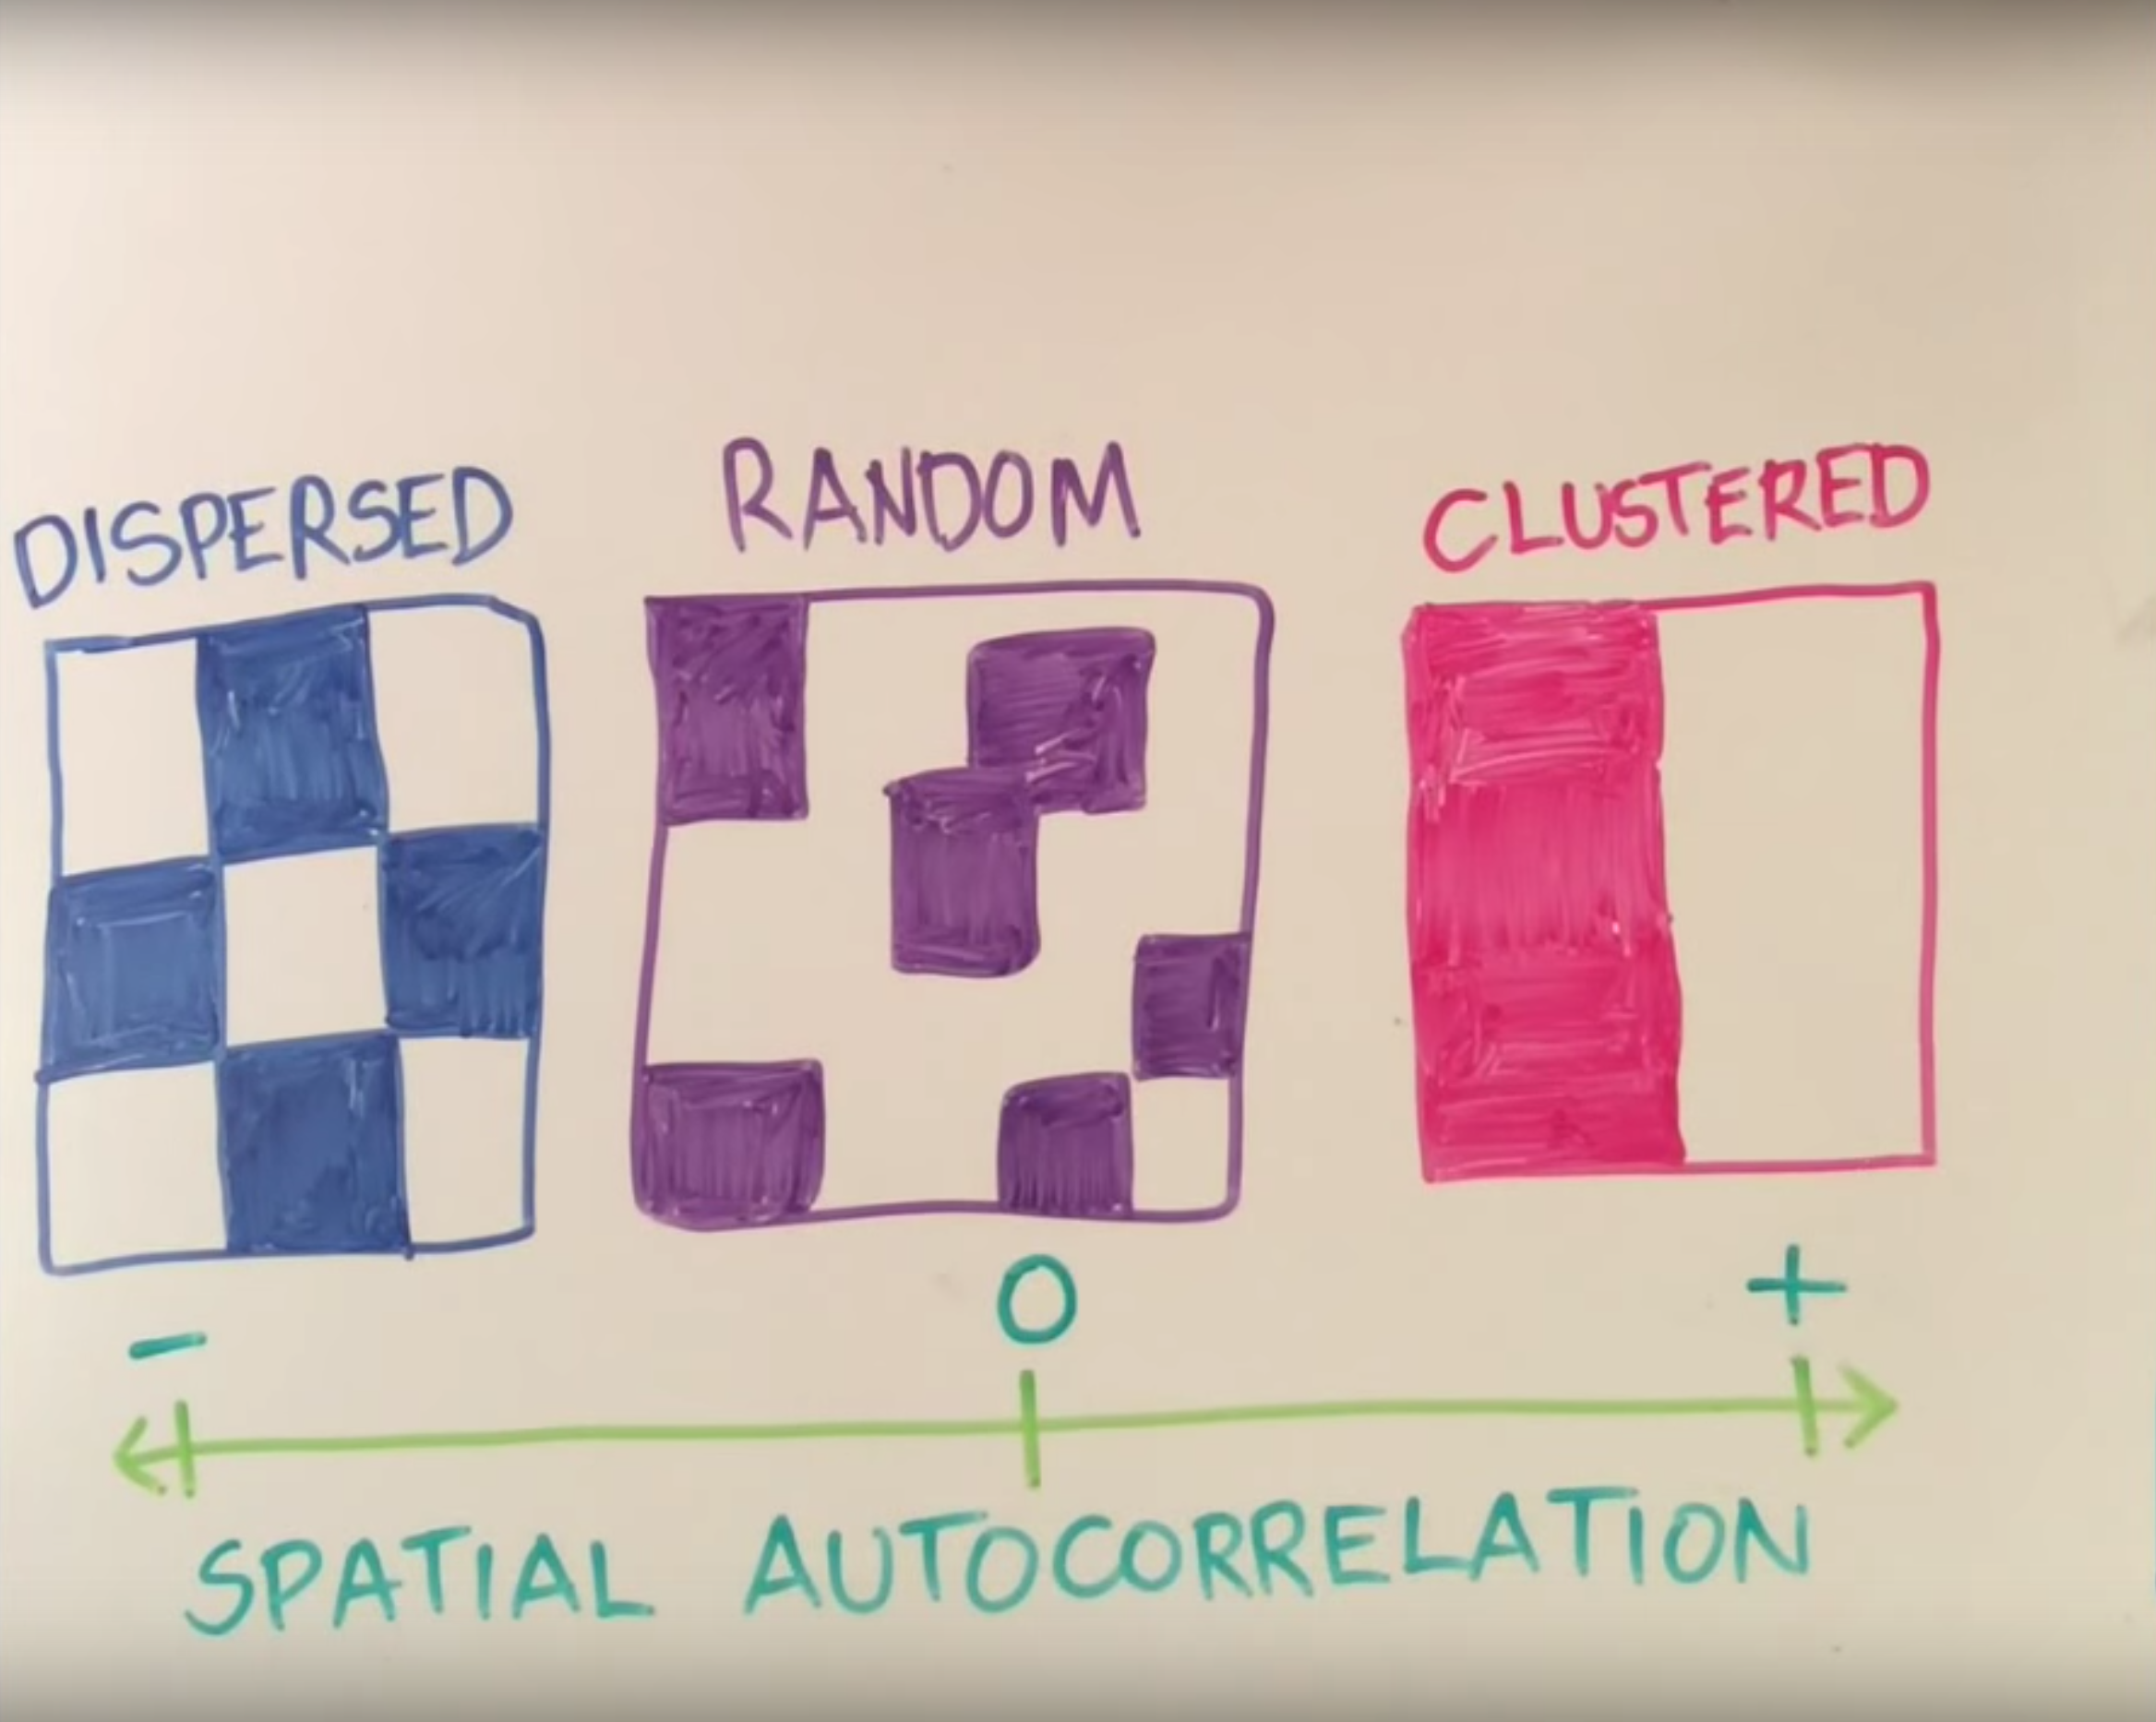 DISPERSED RANDOM CLUSTERED
- 0 +
SPATIAL AUTOCORRELATION